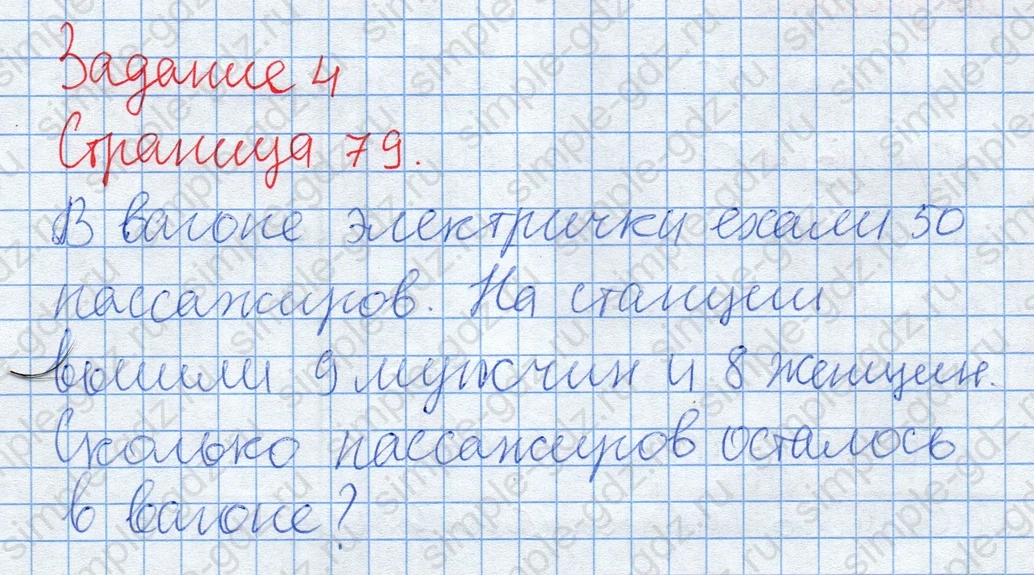 Задание 4
Страница 79.
В вагоне электрички ехали 50
пассажиров. На станции
вышли 9 мужчин и 8 женщин.
Сколько пассажиров осталось
в вагоне?
simple-gdz.ru